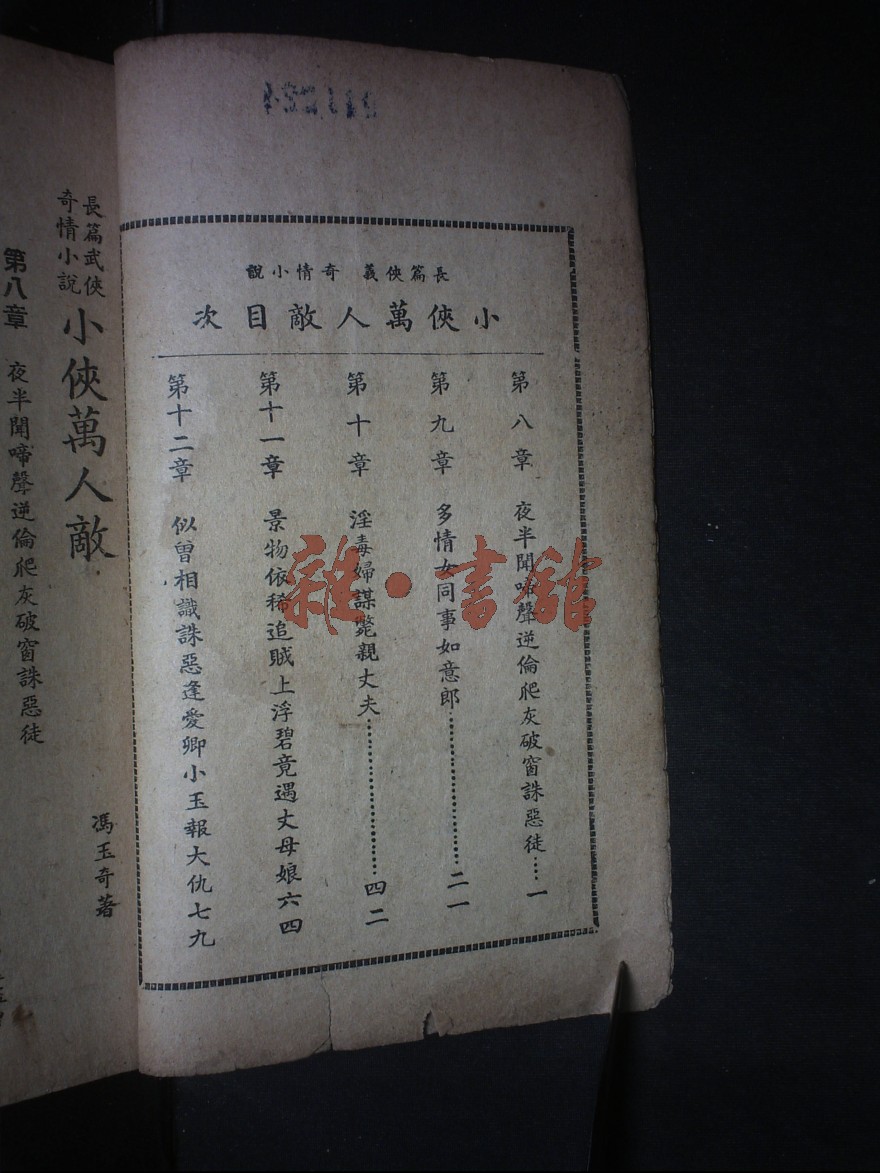 長篇俠義 奇情小說
小俠萬人敵目次
第八章 夜半聞啼聲逆倫爬灰破窗誅惡徒……一
第九章 多情女同事如意郎……二一
第十章 淫毒婦謀斃親丈夫……四二
第十一章 景物依稀追賊上浮碧竟遇丈母娘六四
第十二章 似曾相識誅惡逢愛卿小玉報大仇七九
長篇武俠
奇情小說
小俠萬人敵
馮玉奇著
第八章 夜半聞啼聲逆倫爬灰破窗誅惡徒
雜·書館